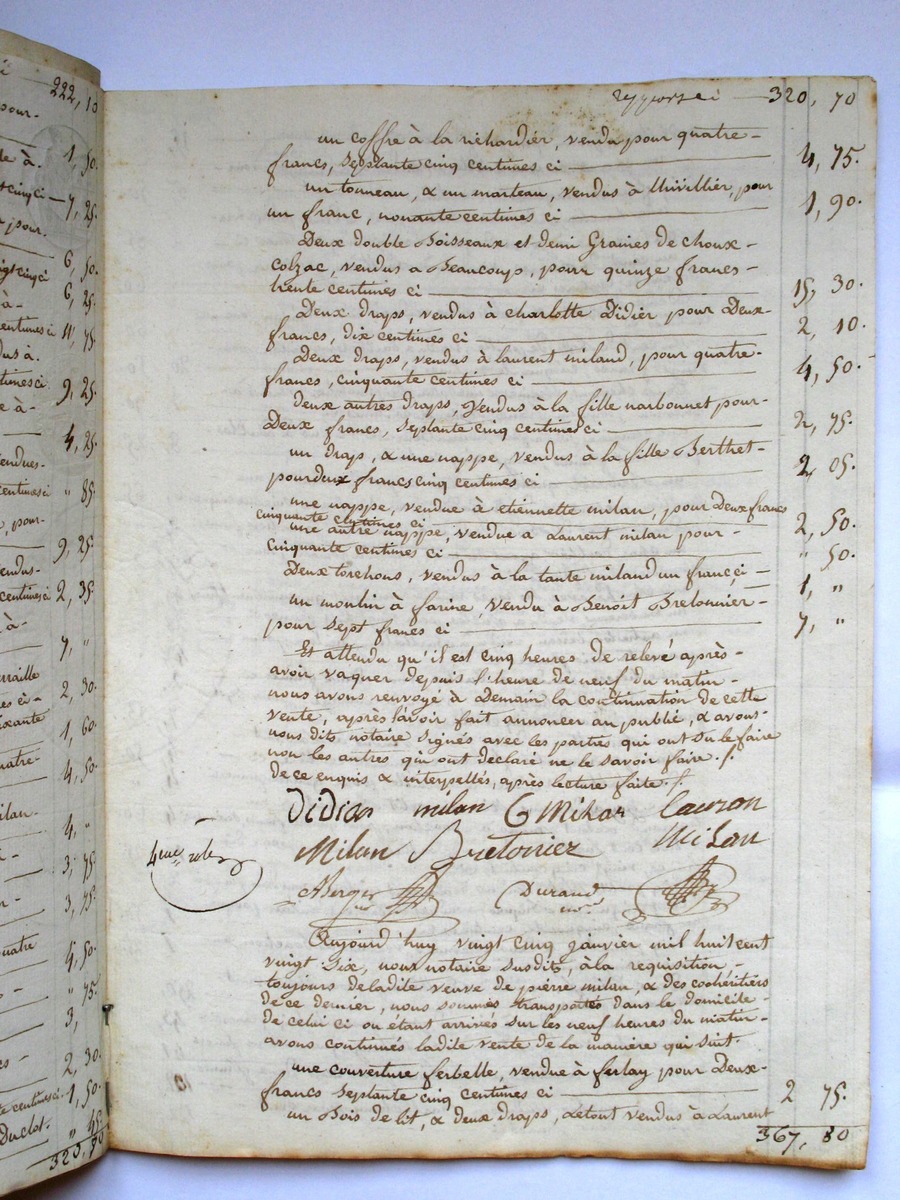 222, 10
pour.
de à. 1, 50.
7, 25.
pour.
6, 50.
6, 25.
centimes ci 11, 75.
dus à.
9, 25.
4, 25.
centimes ci " 85
pour-
9, 25.
centimes ci 2, 35
7, "
2, 30.
1, 60
4, 50.
4, "
3, 75
3, 75.
4, 50.
" 75.
3,
2, 30.
centimes ci 1, 50.
Duclos. " 45
320, 70
reporté ci — 320, 70
un coffre à la richardier, vendu pour quatre-
francs, Septante cinq centimes ci — 4, 75.
un tonneau, & un marteau, vendus à thivillier, pour
un franc, nonante centimes ci — 1, 90.
Deux double Boisseaux et demi Graines de choux-
colzac, vendus a Beaucoup, pour quinze francs-
trente centimes ci — 15, 30.
Deux draps, vendus à charlotte Didier pour Deux-
francs, dix centimes ci — 2, 10.
Deux draps, vendus à laurent miland, pour quatre-
francs, cinquante centimes ci — 4, 50.
Deux autres draps, Vendus à la fille narbonnet pour-
Deux francs, Septante cinq centimes ci — 2, 75.
un Drap, & une nappe, vendus à la fille Berthet-
pour deux francs cinq centimes ci — 2, 05.
une nappe, vendue à etiennette milan, pour Deux francs
cinquante centimes ci — 2, 50.
une autre nappe, vendue a Laurent milan pour-
cinquante centimes ci — " 50.
Deux torchons, vendus à la tante miland un franc, ci — 1, "
un moulin à farine, vendu à Benoit Bretonnier-
pour Sept francs ci — 7, "
Et attendu qu'il est cinq heures de relevé après-
avoir vaquer depuis l'heure de neuf du matin-
nous avons renvoyé à Demain la continuation de cette
vente, après l'avoir fait annoncer au public, & avons-
nous dits notaire signés avec les parties qui ont su le faire
non les autres qui ont declaré ne le savoir faire ./.
de ce enquis & interpellés, après lecture faite ./.
Didier milan C Milan lauron
Milan Bretonier Milan
4eme role
Berger Durand
Aujourd'huy vingt cinq janvier mil huit cent
vingt Six, nous notaire susdits, à la requisition-
toujours de ladite veuve de pierre milan, & des cohéritiers
de ce dernier, nous sommes transportés dans le domicile-
de celui ci ou étant arrivés sur les neuf heures du matin-
avons continués ladite vente de la manière qui suit.
une couverture ferbelle, vendue à ferlay pour Deux-
francs Septante cinq centimes ci — 2 75.
un Bois de lit, & deux draps, le tout vendus à Laurent
367, 80